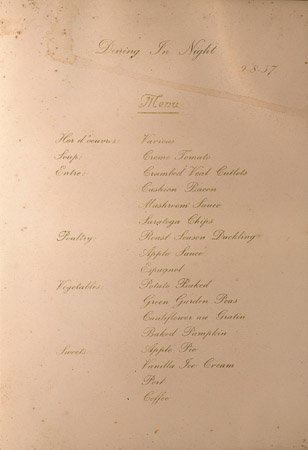 Dining In Night
9.8.57
Menu
Hor d'ouvies: Various
Soup: Crême Tomato
Entre: Crumbed Veal Cutlets
Cushion Bacon
Mushroom Sauce
Saratoga Chips
Poultry: Roast Season Duckling
Apple Sauce
Espagnol
Vegetables: Potato Baked
Green Garden Peas
Cauliflower au Gratin
Baked Pumpkin
Sweets: Apple Pie
Vanilla Ice Cream
Port
Coffee